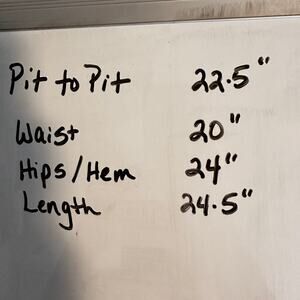 Pit to Pit 22.5"
Waist 20"
Hips/Hem 24"
Length 24.5"